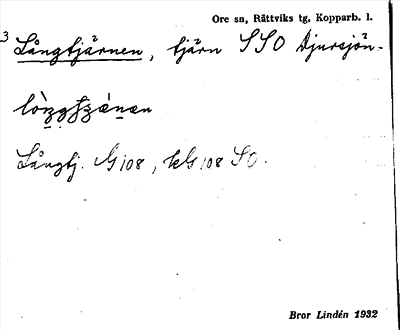 Ore sn, Rättviks tg, Kopparb. l.
3 Långtjärnen, tjärn SSO Djursjön.
Långtj. G 108, kG 108 SO.
Bror Lindén 1932